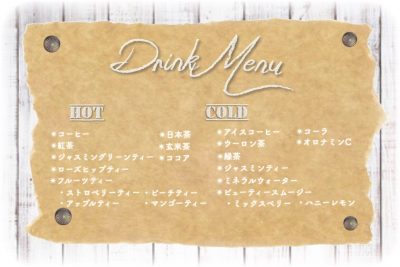 Drink Menu
HOT
＊コーヒー
＊紅茶
＊ジャスミングリーンティー
＊ローズヒップティー
＊フルーツティー
・ストロベリーティー ・ピーチティー
・アップルティー ・マンゴーティー
＊日本茶
＊玄米茶
＊ココア
COLD
＊アイスコーヒー
＊ウーロン茶
＊緑茶
＊ジャスミンティー
＊ミネラルウォーター
＊ビューティースムージー
・ミックスベリー ・ハニーレモン
＊コーラ
＊オロナミンC